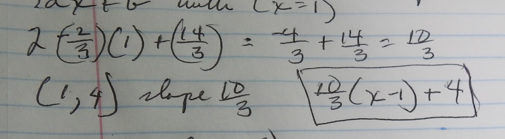 2ax + b with (x=1)
2(-2/3)(1) + (14/3) = -4/3 + 14/3 = 10/3
(1,4) slope 10/3 10/3(x-1)+4